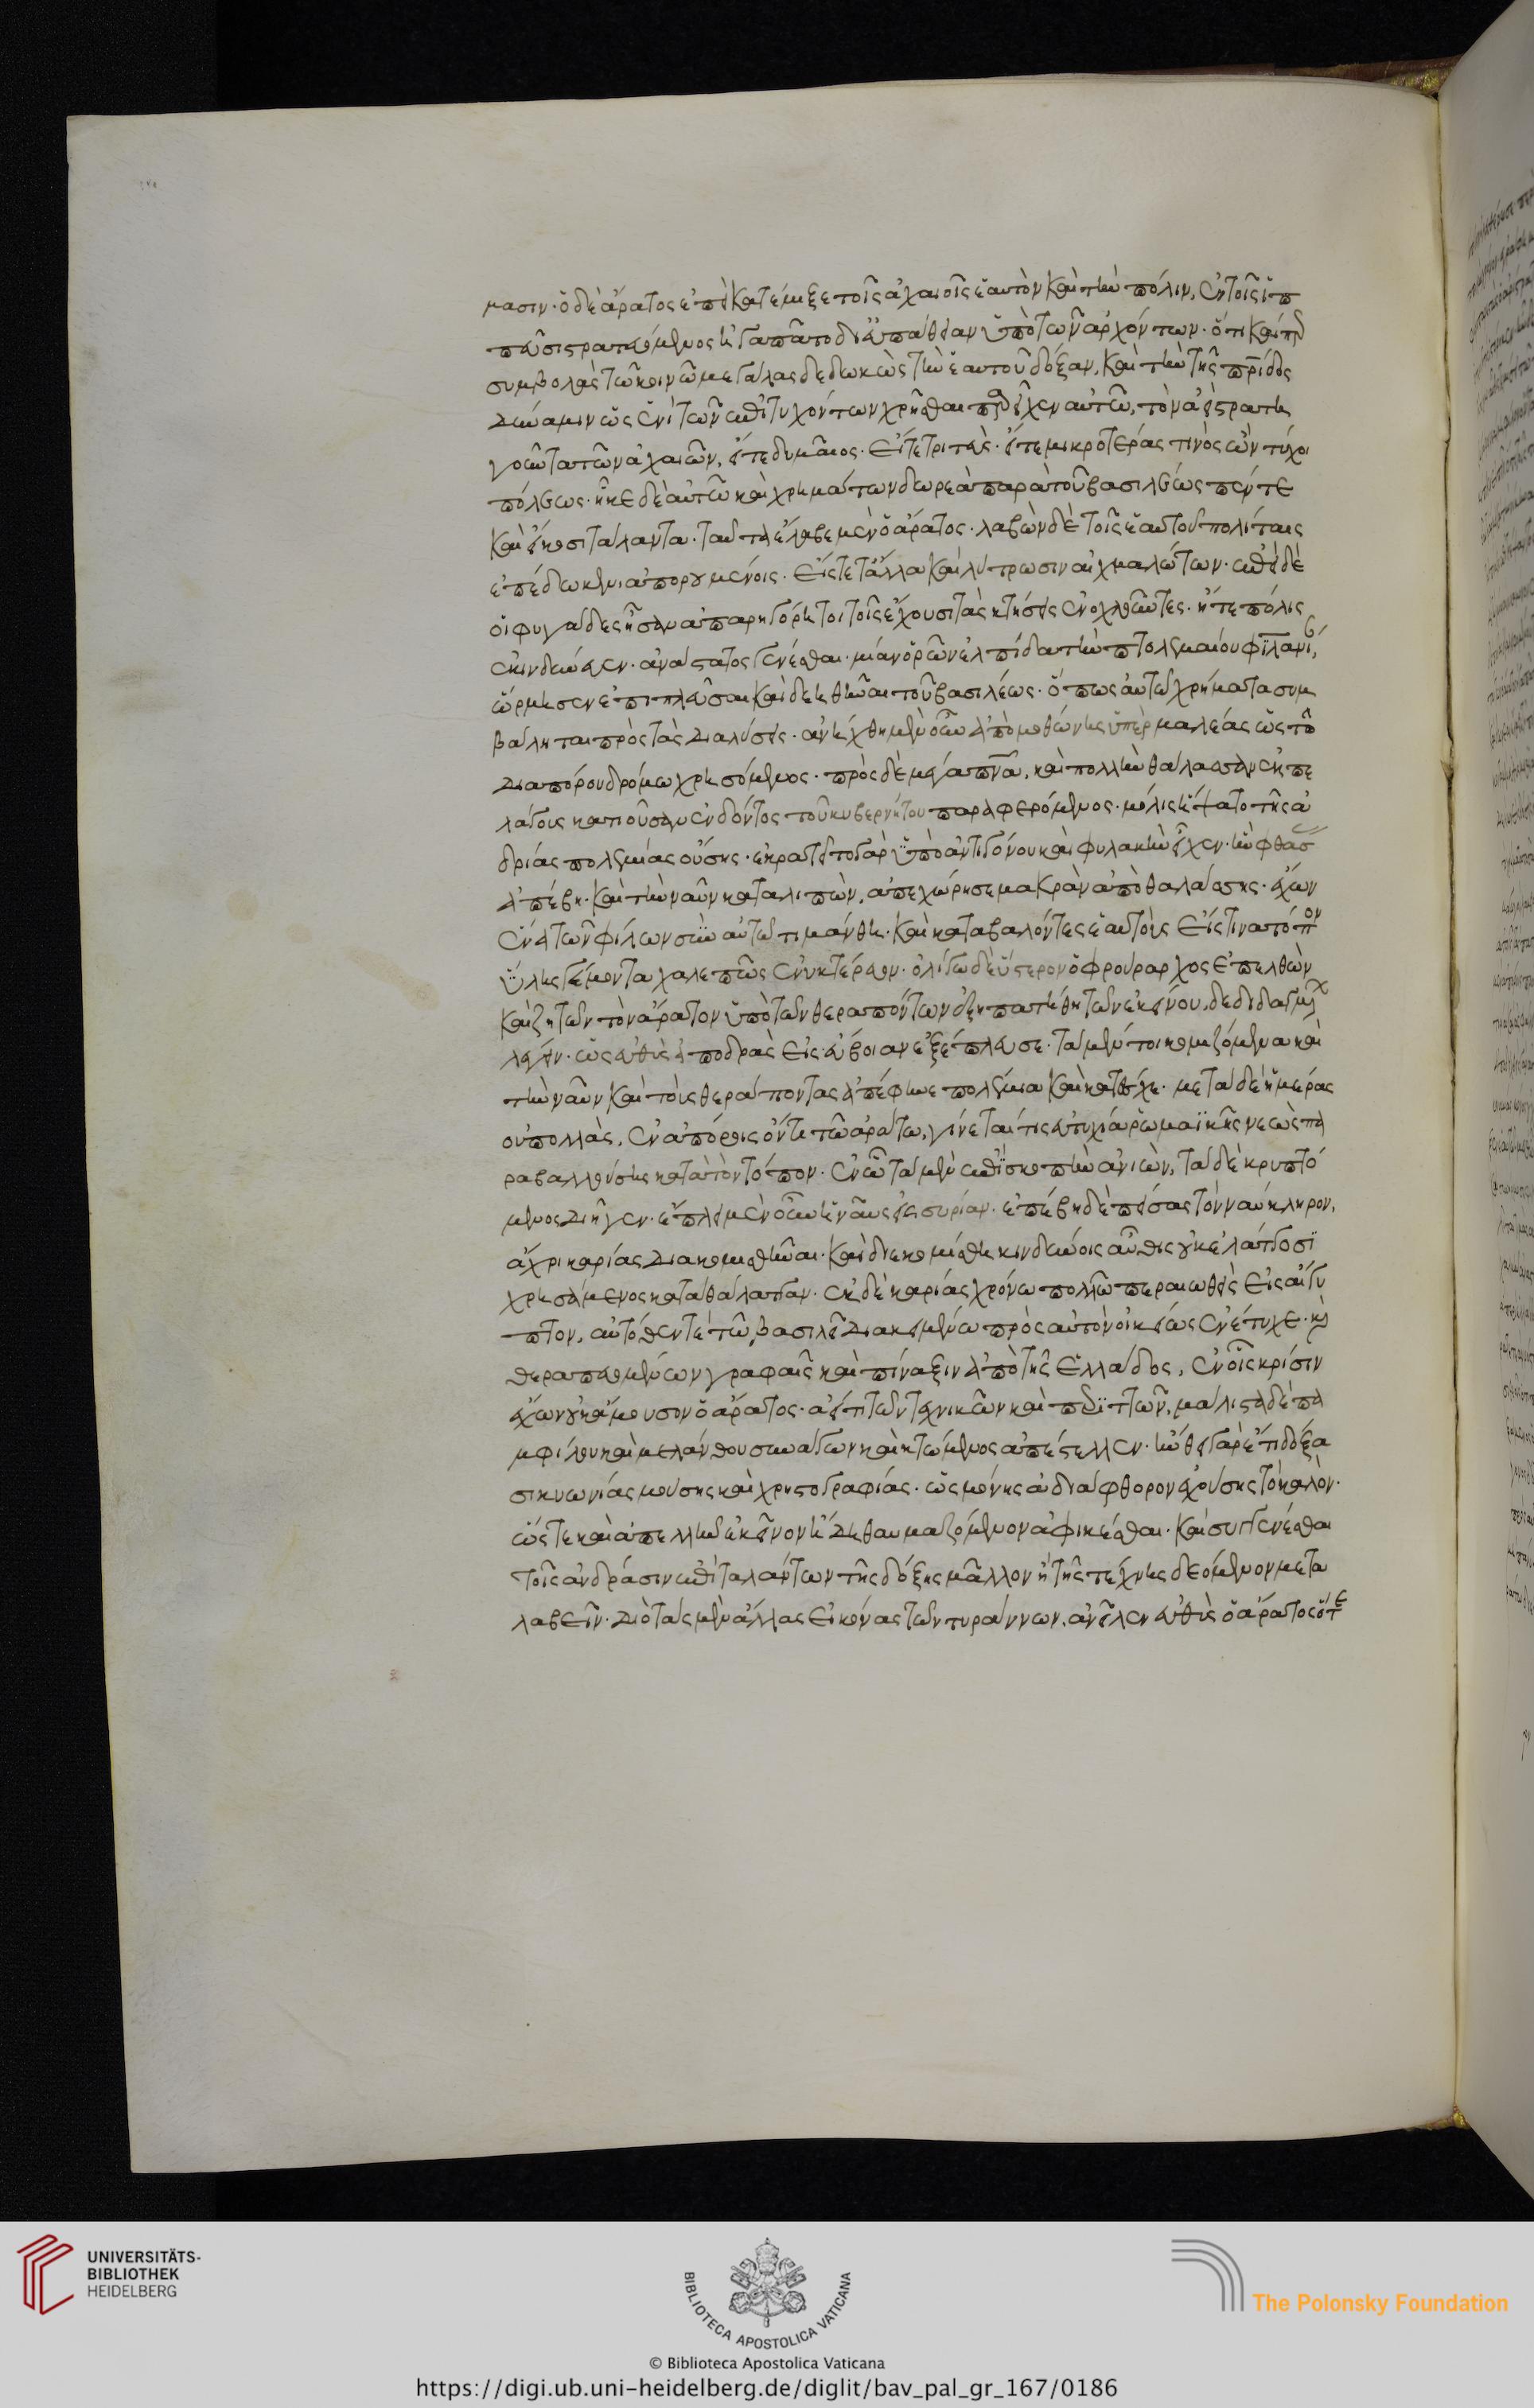 μασιν· ὁ δὲ ἄρατος ἐπεὶ κατέμιξε τοῖς ἀχαιοῖς ἑαυτὸν καὶ τὴν πόλιν, ἐν τοῖς ἱπ
πεῦσι στρατευόμενος ἠγαπᾶτο δι' εὐπείθειαν ὑπὸ τῶν ἀρχόντων· ὅτι καίπερ
συμβολὰς τῶ κοινῶ μεγάλας δεδωκὼς τὴν ἑαυτοῦ δόξαν, καὶ τὴν τῆς πρίδος
δύναμιν ὡς ἑνὶ τῶν ἐπιτυχόντων χρῆσθαι παρεῖχεν αὐτῶ, τὸν ἀεὶ στρατη
γοῦντα τῶν ἀχαιῶν, εἴτε δυμαῖος· εἴτε τριταὶς· εἴτε μικροτέρας τινὸς ὢν τύχοι
πόλεως· ἧκε δὲ αὐτῶ καὶ χρημάτων δωρεὰ παρὰ τοῦ βασιλέως πέντε
καὶ εἴκοσι τάλαντα· ταῦτα ἔλαβε μὲν ὁ ἄρατος· λαβὼν δὲ τοῖς ἑαυτοῦ πολίταις
ἐπέδωκεν ἀπορουμένοις· εἴς τε τἄλλα καὶ λύτρωσιν αἰχμαλώτων· ἐπεὶ δὲ
οἱ φυγάδες ἦσαν ἀπαρηγόρητοι τοῖς ἔχουσι τὰς κτήσεις ἐνοχλοῦντες· ἥ τε πόλις
ἐκινδύνευεν· ἀνάστατος γενέσθαι· μίαν ὁρῶν ἐλπίδα τὴν πτολεμαίου φιλανί,
ὥρμησεν ἐπιπλεῦσαι καὶ δεηθῆναι τοῦ βασιλέως· ὅπως αὐτῶ χρήματα συμ
βάληται πρὸς τὰς διαλύσεις· ἀνήχθη μὲν οὖν ἀπὸ μοθώνης ὑπὲρ μαλέας ὡς τῶ
διὰ πόρου δρόμω χρησόμενος· πρὸς δὲ μέγα πνᾶ, καὶ πολλὴν θάλασσαν ἐκ πε
λάγους κατιοῦσαν ἐνδόντος τοῦ κυβερνήτου παραφερόμενος· μόλις ἥψατο τῆς ἀ
δρίας πολεμίας οὔσης· ἐκρατεῖτο γὰρ ὑπὸ ἀντιγόνου καὶ φυλακὴν εἶχεν· ἣν φθασ
ἀπέβη· καὶ τὴν ναῦν καταλιπὼν, ἀπεχώρησε μακρὰν ἀπὸ θαλάσσης· ἔχων
ἕνα τῶν φίλων σὺν αὐτῶ τιμάνθη· καὶ καταβαλόντες ἑαυτοὺς εἴς τινα τόπον
ὕλης γέμοντα χαλεπῶς ἐνυκτέρευον· ὀλίγω δὲ ὕστερον ὁ φρούραρχος ἐπελθὼν
καὶ ζητῶν τὸν ἄρατον ὑπὸ τῶν θεραπόντων ἐξηπατήθη τῶν ἐκείνου, δεδιδαγμέ
λέγειν· ὡς εὐθὺς ἀποδρὰς εἰς εὔβοιαν ἐξέπλευσε· τὰ μέντοι κομιζόμενα καὶ
τὴν ναῦν καὶ τοὺς θεράποντας ἀπέφηνε πολέμια καὶ κατέσχε· μετὰ δὲ ἡμέρας
οὐ πολλὰς, ἐν ἀπόροις ὄντι τῶ ἀράτω, γίνεταί τις εὐτυχία ῥωμαϊκῆς νεὼς πα
ραβαλλούσης κατὰ τὸν τόπον· ἐν ὧ τὰ μὲν ἐπὶ σκοπὴν ἀνιὼν, τὰ δὲ κρυπτό
μενος διῆγεν· ἔπλει μὲν οὖν ἡ ναῦς εἰς συρίαν· ἐπέβη δὲ πείσας τὸν ναύκληρον,
ἄχρι καρίας διακομισθῆναι· καὶ διεκομίσθη κινδύνοις αὖθις οὐκ ἐλάττοσι
χρησάμενος κατὰ θάλατταν· ἐκ δὲ καρίας χρόνω πολλῶ περαιωθεὶς εἰς αἴγυ
πτον, αὐτόθεν τε τῶ βασιλεῖ διακειμένω πρὸς αὐτὸν οἰκείως ἐνέτυχε· καὶ
θεραπευομένων γραφαῖς καὶ πίναξιν ἀπὸ τῆς ἑλλάδος, ἐν οἷς κρίσιν
ἔχων οὐκ ἄμουσον ὁ ἄρατος· ἀεί τι τῶν τεχνικῶν καὶ περιττῶν, μάλιστα δὲ πα
μφίλου καὶ μελάνθου συνάγων καὶ κτώμενος ἀπέστελλεν· ἤνθει γὰρ ἔτι δόξα
σικυωνίας μούσης καὶ χρηστογραφίας· ὡς μόνης ἀδιάφθορον ἐχούσης τὸ καλὸν·
ὥστε καὶ ἀπελλῆν ἐκεῖνον ἤδη θαυμαζόμενον ἀφικέσθαι· καὶ συγγενέσθαι
τοῖς ἀνδράσιν ἐπὶ ταλάντων τῆς δόξης μᾶλλον ἢ τῆς τέχνης δεόμενον μετα
λαβεῖν· διὸ τὰς μὲν ἄλλας εἰκόνας τῶν τυράννων, ἀνεῖλεν εὐθὺς ὁ ἄρατος ὅτε
UNIVERSITÄTS-
BIBLIOTHEK
HEIDELBERG
BIBLIOTECA APOSTOLICA VATICANA
The Polonsky Foundation
© Biblioteca Apostolica Vaticana
https://digi.ub.uni-heidelberg.de/diglit/bav_pal_gr_167/0186